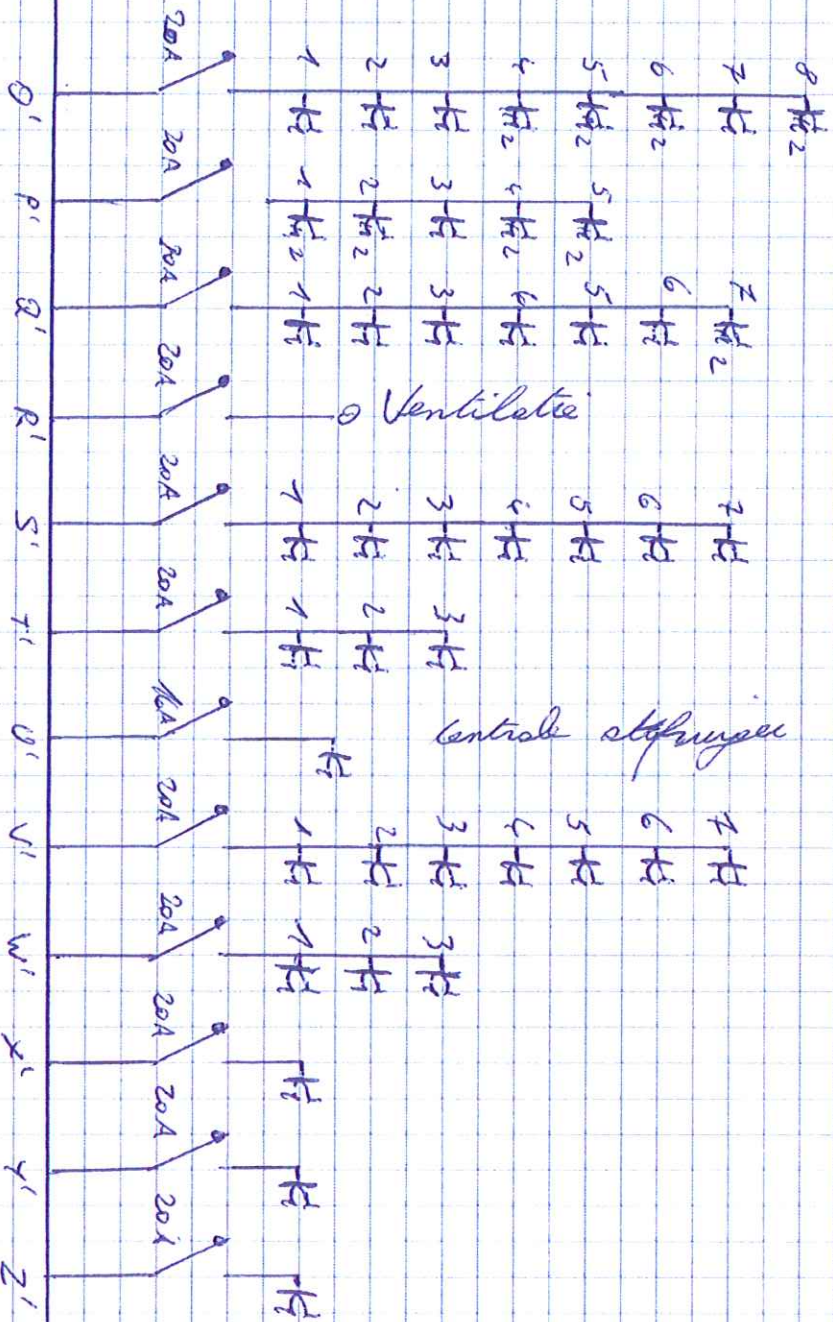 O' 20A 1 2 3 4 5 6 7 8
2 2 2 2 2
P' 20A 1 2 3 4 5
2 2 2 2
Q' 20A 1 2 3 4 5 6 7
2
R' 20A Ventilatie
S' 20A 1 2 3 4 5 6 7
T' 20A 1 2 3
U' 16A centrale
V' 20A 1 2 3 4 5 6 7
W' 20A 1 2 3
X' 20A
Y' 20A
Z' 20A